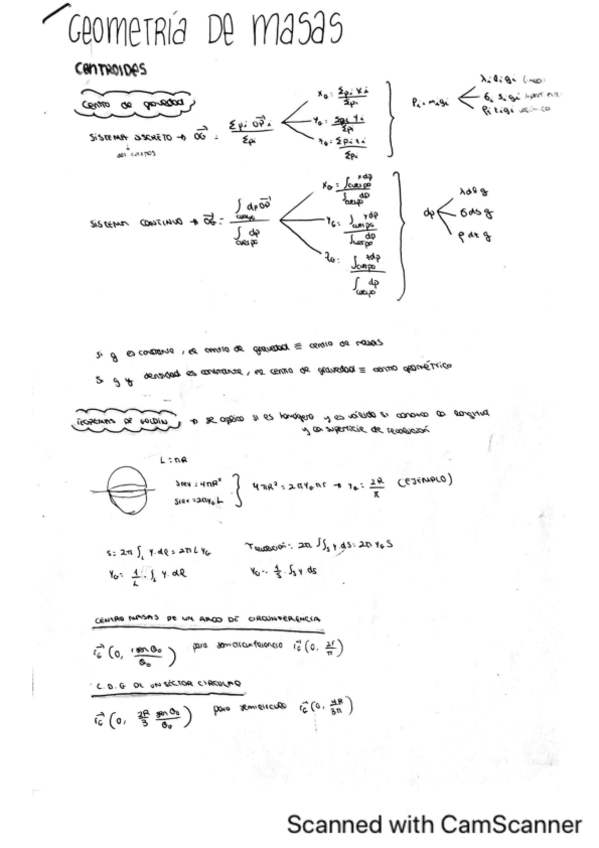 GEOMETRÍA DE MASAS
CENTROIDES
Centro de gravedad
SISTEMA DSCRETO → OG = Σ pi OPi / Σ pi
XG = Σ pi Xi / Σ pi
YG = Σ pi Yi / Σ pi
ZG = Σ pi Zi / Σ pi
Pi = mi gi
SISTEMA CONTINUO → OG = ∫cuerpo dp OP / ∫cuerpo dp
XG = ∫cuerpo x dp / ∫cuerpo dp
YG = ∫cuerpo y dp / ∫cuerpo dp
ZG: ∫cuerpo z dp / ∫cuerpo dp
dp
λ dl g
σ ds g
ρ dτ g
Si g es constante, el centro de gravedad ≡ centro de masas
Si g y densidad es constante, el centro de gravedad ≡ centro geométrico
TEOREMAS DE GULDIN → se aplica si es homogeneo y es válido si conozco la longitud
y la superficie de revolución
L = πR
Srev = 4πR²
Srev = 2πYG L
4πR² = 2πYG πr → YG = 2R/π (EJEMPLO)
S = 2π ∫L y·dl = 2πL YG
2π ∫∫S y·ds = 2π YG S
YG = 1/L · ∫L y·dl
YG = 1/S · ∫S y ds
CENTRO MASAS DE UN ARCO DE CIRCUNFERENCIA
rG (0, r sen θ0 / θ0) para semicircunferencia rG (0, 2r/π)
C.D.G DE UN SECTOR CIRCULAR
rG (0, 2R/3 sen θ0 / θ0) para semicirculo rG (0, 4R/3π)
Scanned with CamScanner